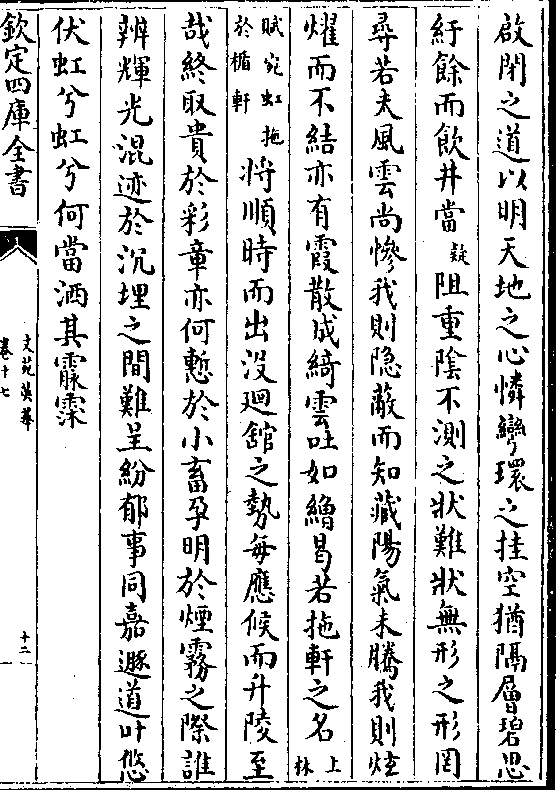 啟閉之道以明天地之心憐彎環之挂空猶隔層碧思
紆餘而飲井當疑阻重陰不測之狀難狀無形之形罔
尋若夫風雲尚慘我則隐蔽而知藏陽氣未騰我則炫
燿而不結亦有霞散成綺雲吐如繒曷若拖軒之名上林
賦宛虹拖於楯軒將順時而出没廻舘之勢每應候而升陵至
哉終取貴於彩章亦何慙於小畜孕明於煙霧之際誰
辨輝光混迹於沉埋之間難呈紛郁事同嘉遯道叶悠
伏虹兮虹兮何當洒其霡霂
欽定四庫全書
文苑英華
卷十七
十二